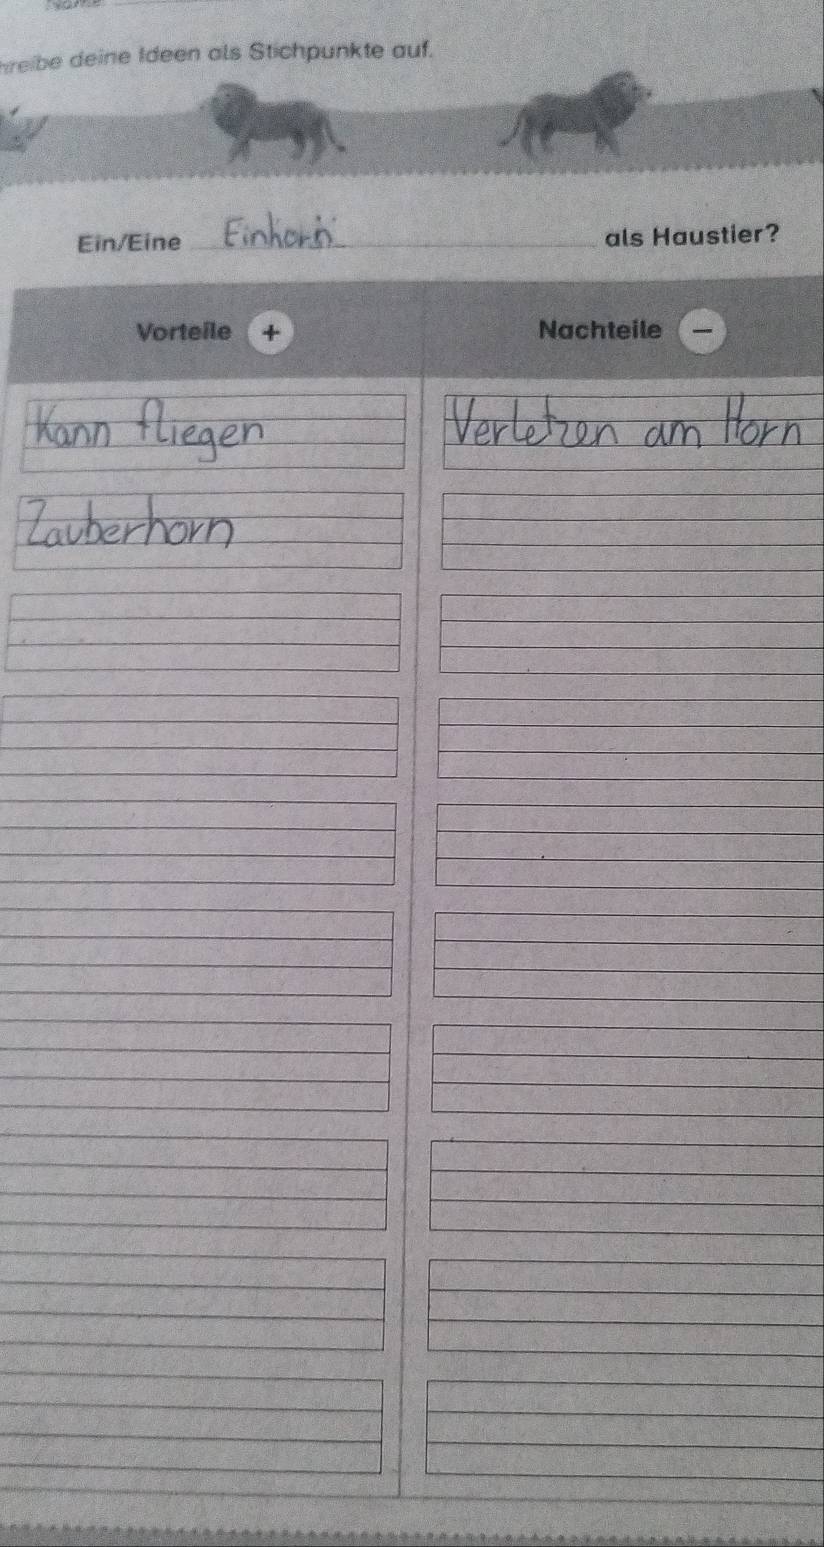 Name
hreibe deine Ideen als Stichpunkte auf.
Ein/Eine Einhorn als Haustier?
Vorteile + Nachteile −
Kann fliegen
Verletzen am Horn
Zauberhorn